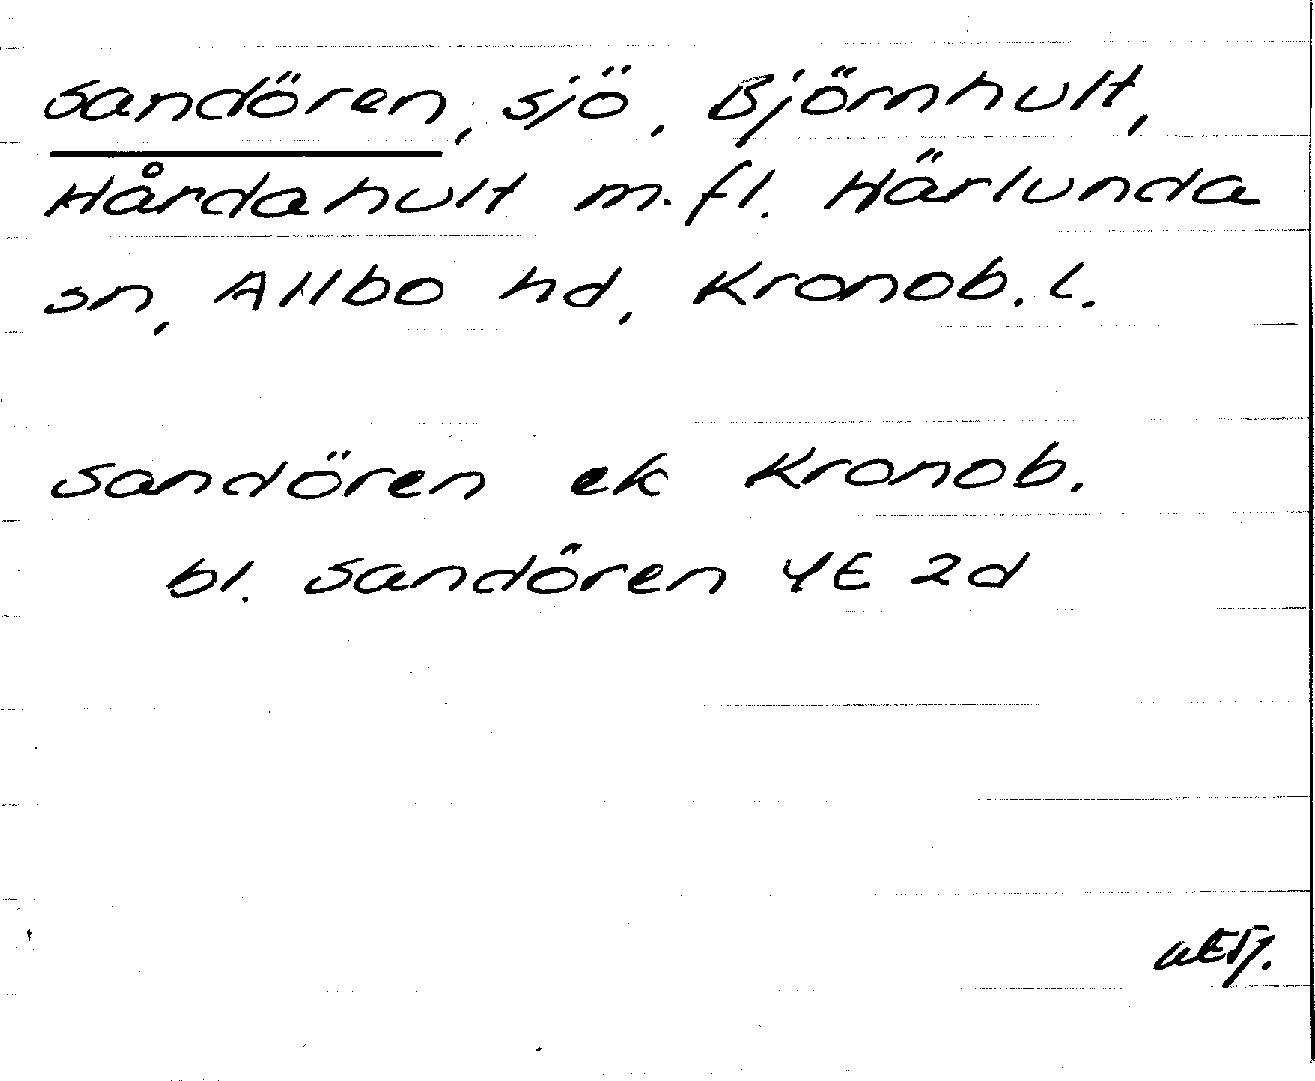 Sandören, sjö, Björnhult,
Hårdahult m.fl. Härlunda
sn, Allbo hd, Kronob. l.
Sandören ek Kronob.
bl. Sandören 4E 2d